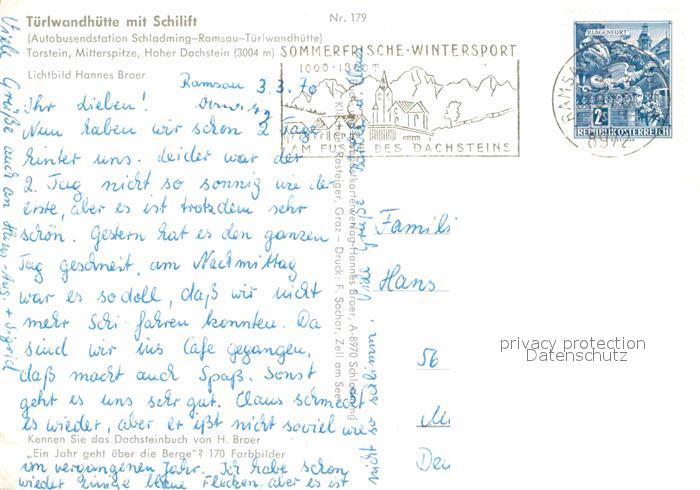 Türlwandhütte mit Schilift
(Autobusendstation Schladming–Ramsau–Türlwandhütte)
Torstein, Mitterspitze, Hoher Dachstein (3004 m)
Lichtbild Hannes Broer
Nr. 179
SOMMERFRISCHE · WINTERSPORT
AM FUSSE DES DACHSTEINS
RAMSAU
8972
KLAGENFURT
REPUBLIK ÖSTERREICH
Ramsau 3.3.70
Ihr Lieben!
Nun haben wir schon 2 Tage
hinter uns. Leider war der
2. Tag nicht so sonnig wie der
erste, aber es ist trotzdem sehr
schön. Gestern hat es den ganzen
Tag geschneit, am Nachmittag
war es so doll, daß wir nicht
mehr Schi fahren konnten. Da
sind wir ins Cafe gegangen,
daß macht auch Spaß. Sonst
geht es uns sehr gut. Claus schmeckt
es wieder, aber er ißt nicht soviel wie
Kennen Sie das Dachsteinbuch von H. Broer
„Ein Jahr geht über die Berge"? 170 Farbbilder
im vergangenen Jahr. Ich habe schon
wieder einige blaue Flecken, aber es ist
nicht so schlimm.
Viele Grüße auch an Hans-Aug. + Sigrid
Postkartenverlag Hannes Broer, A-8970 Schladming
Rasteiger, Graz – Druck: F. Sochor, Zell am See
Famili
Hans
56
privacy protection
Datenschutz